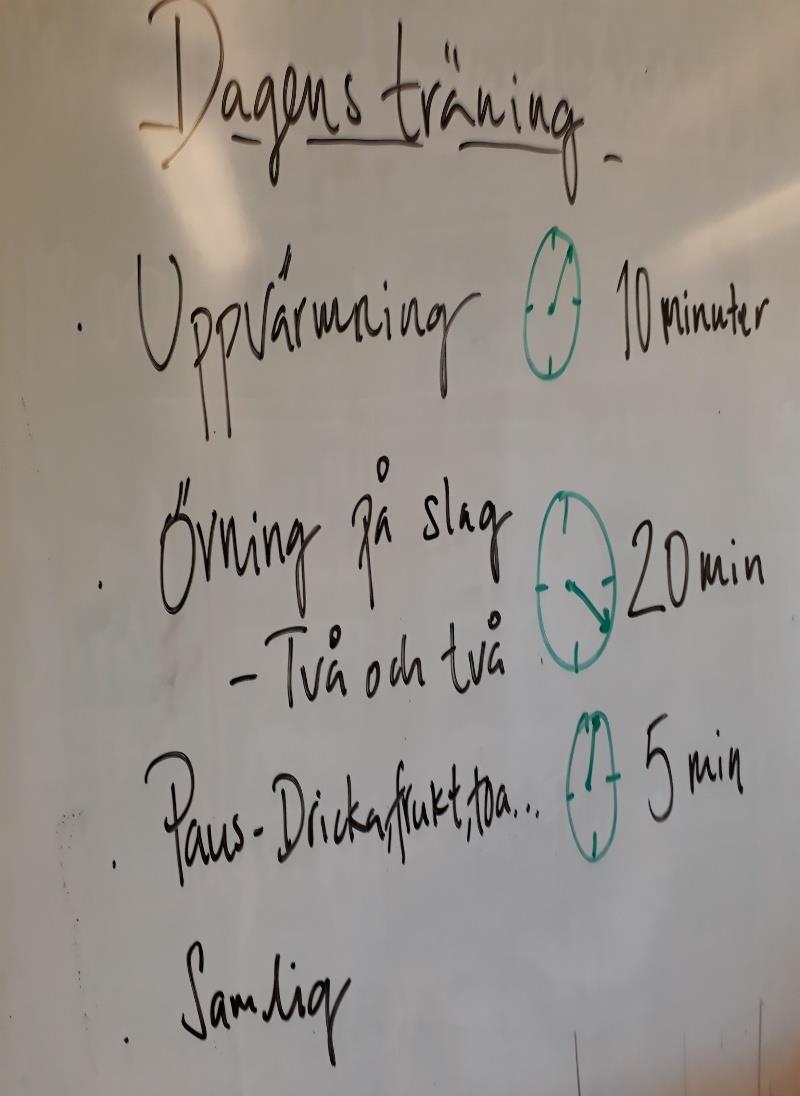 Dagens träning
· Uppvärmning 10 minuter
· Övning på slag 20 min
- Två och två
· Paus - Dricka, frukt, toa... 5 min
· Samlig